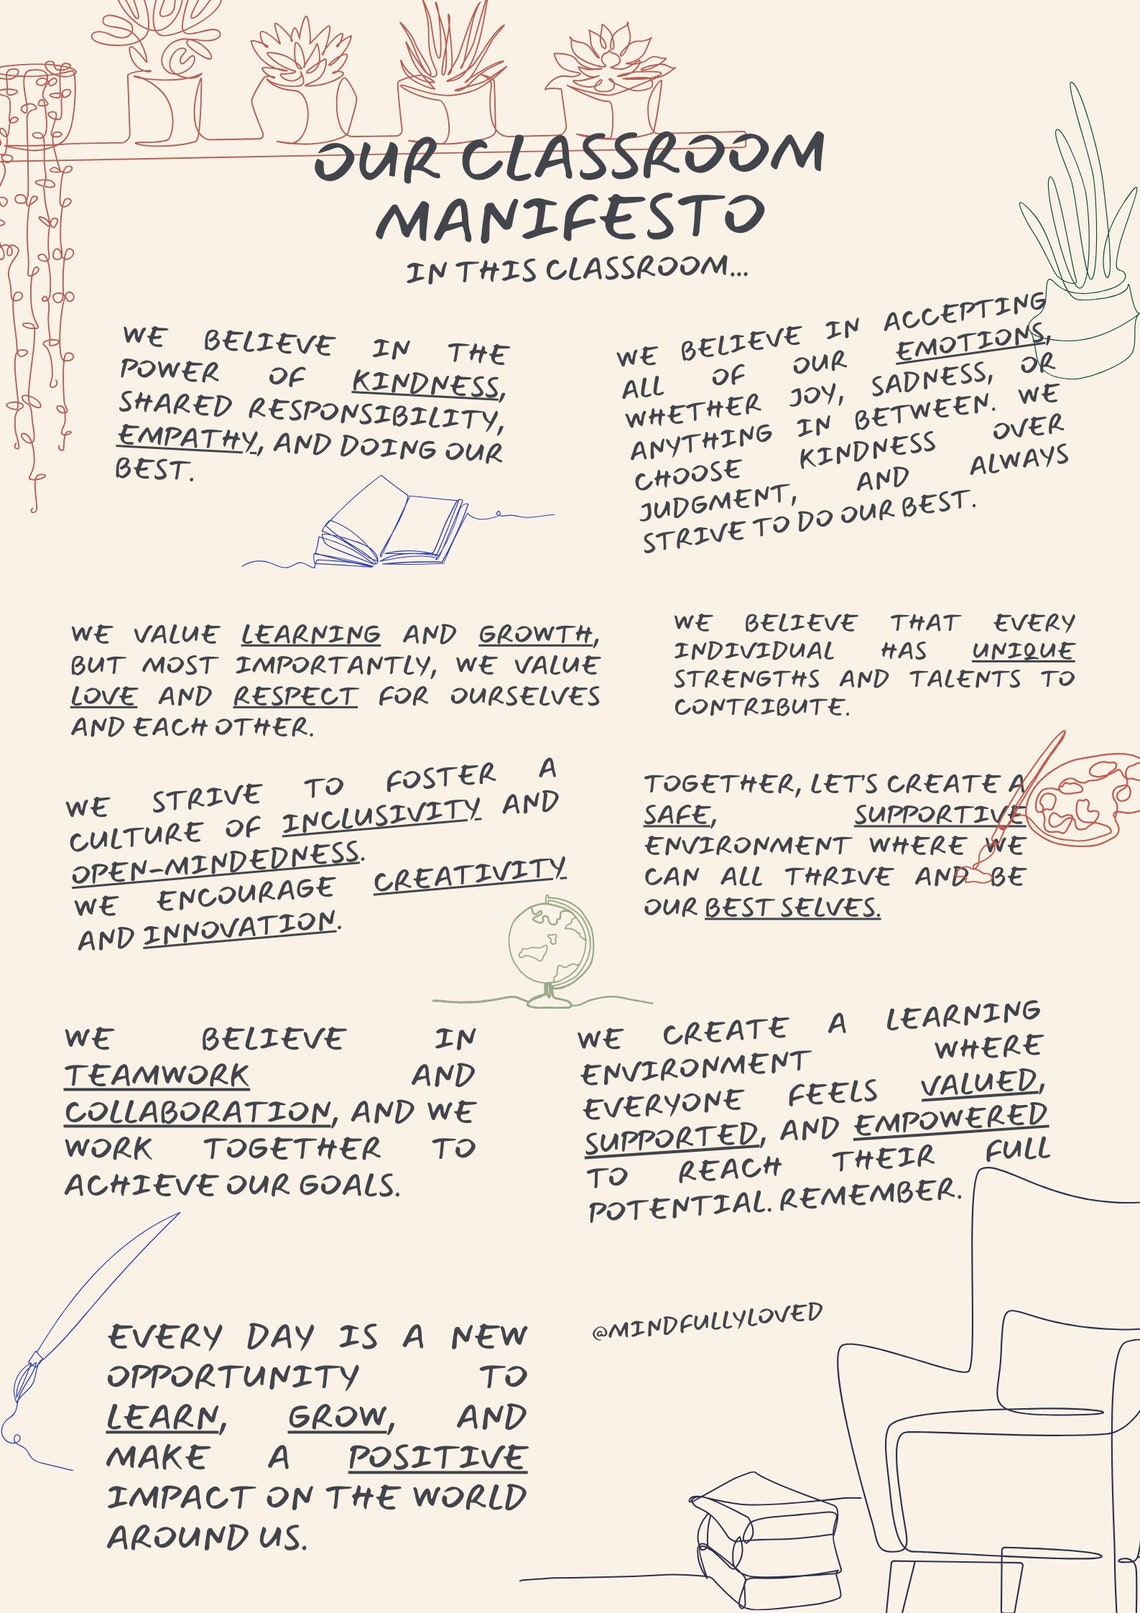 OUR CLASSROOM
MANIFESTO
IN THIS CLASSROOM...
WE BELIEVE IN THE
POWER OF KINDNESS,
SHARED RESPONSIBILITY,
EMPATHY, AND DOING OUR
BEST.
WE BELIEVE IN ACCEPTING
ALL OF OUR EMOTIONS,
WHETHER JOY, SADNESS, OR
ANYTHING IN BETWEEN. WE
CHOOSE KINDNESS OVER
JUDGMENT, AND ALWAYS
STRIVE TO DO OUR BEST.
WE VALUE LEARNING AND GROWTH,
BUT MOST IMPORTANTLY, WE VALUE
LOVE AND RESPECT FOR OURSELVES
AND EACH OTHER.
WE BELIEVE THAT EVERY
INDIVIDUAL HAS UNIQUE
STRENGTHS AND TALENTS TO
CONTRIBUTE.
WE STRIVE TO FOSTER A
CULTURE OF INCLUSIVITY AND
OPEN-MINDEDNESS.
WE ENCOURAGE CREATIVITY
AND INNOVATION.
TOGETHER, LET'S CREATE A
SAFE, SUPPORTIVE
ENVIRONMENT WHERE WE
CAN ALL THRIVE AND BE
OUR BEST SELVES.
WE BELIEVE IN
TEAMWORK AND
COLLABORATION, AND WE
WORK TOGETHER TO
ACHIEVE OUR GOALS.
WE CREATE A LEARNING
ENVIRONMENT WHERE
EVERYONE FEELS VALUED,
SUPPORTED, AND EMPOWERED
TO REACH THEIR FULL
POTENTIAL. REMEMBER.
EVERY DAY IS A NEW
OPPORTUNITY TO
LEARN, GROW, AND
MAKE A POSITIVE
IMPACT ON THE WORLD
AROUND US.
@MINDFULLYLOVED